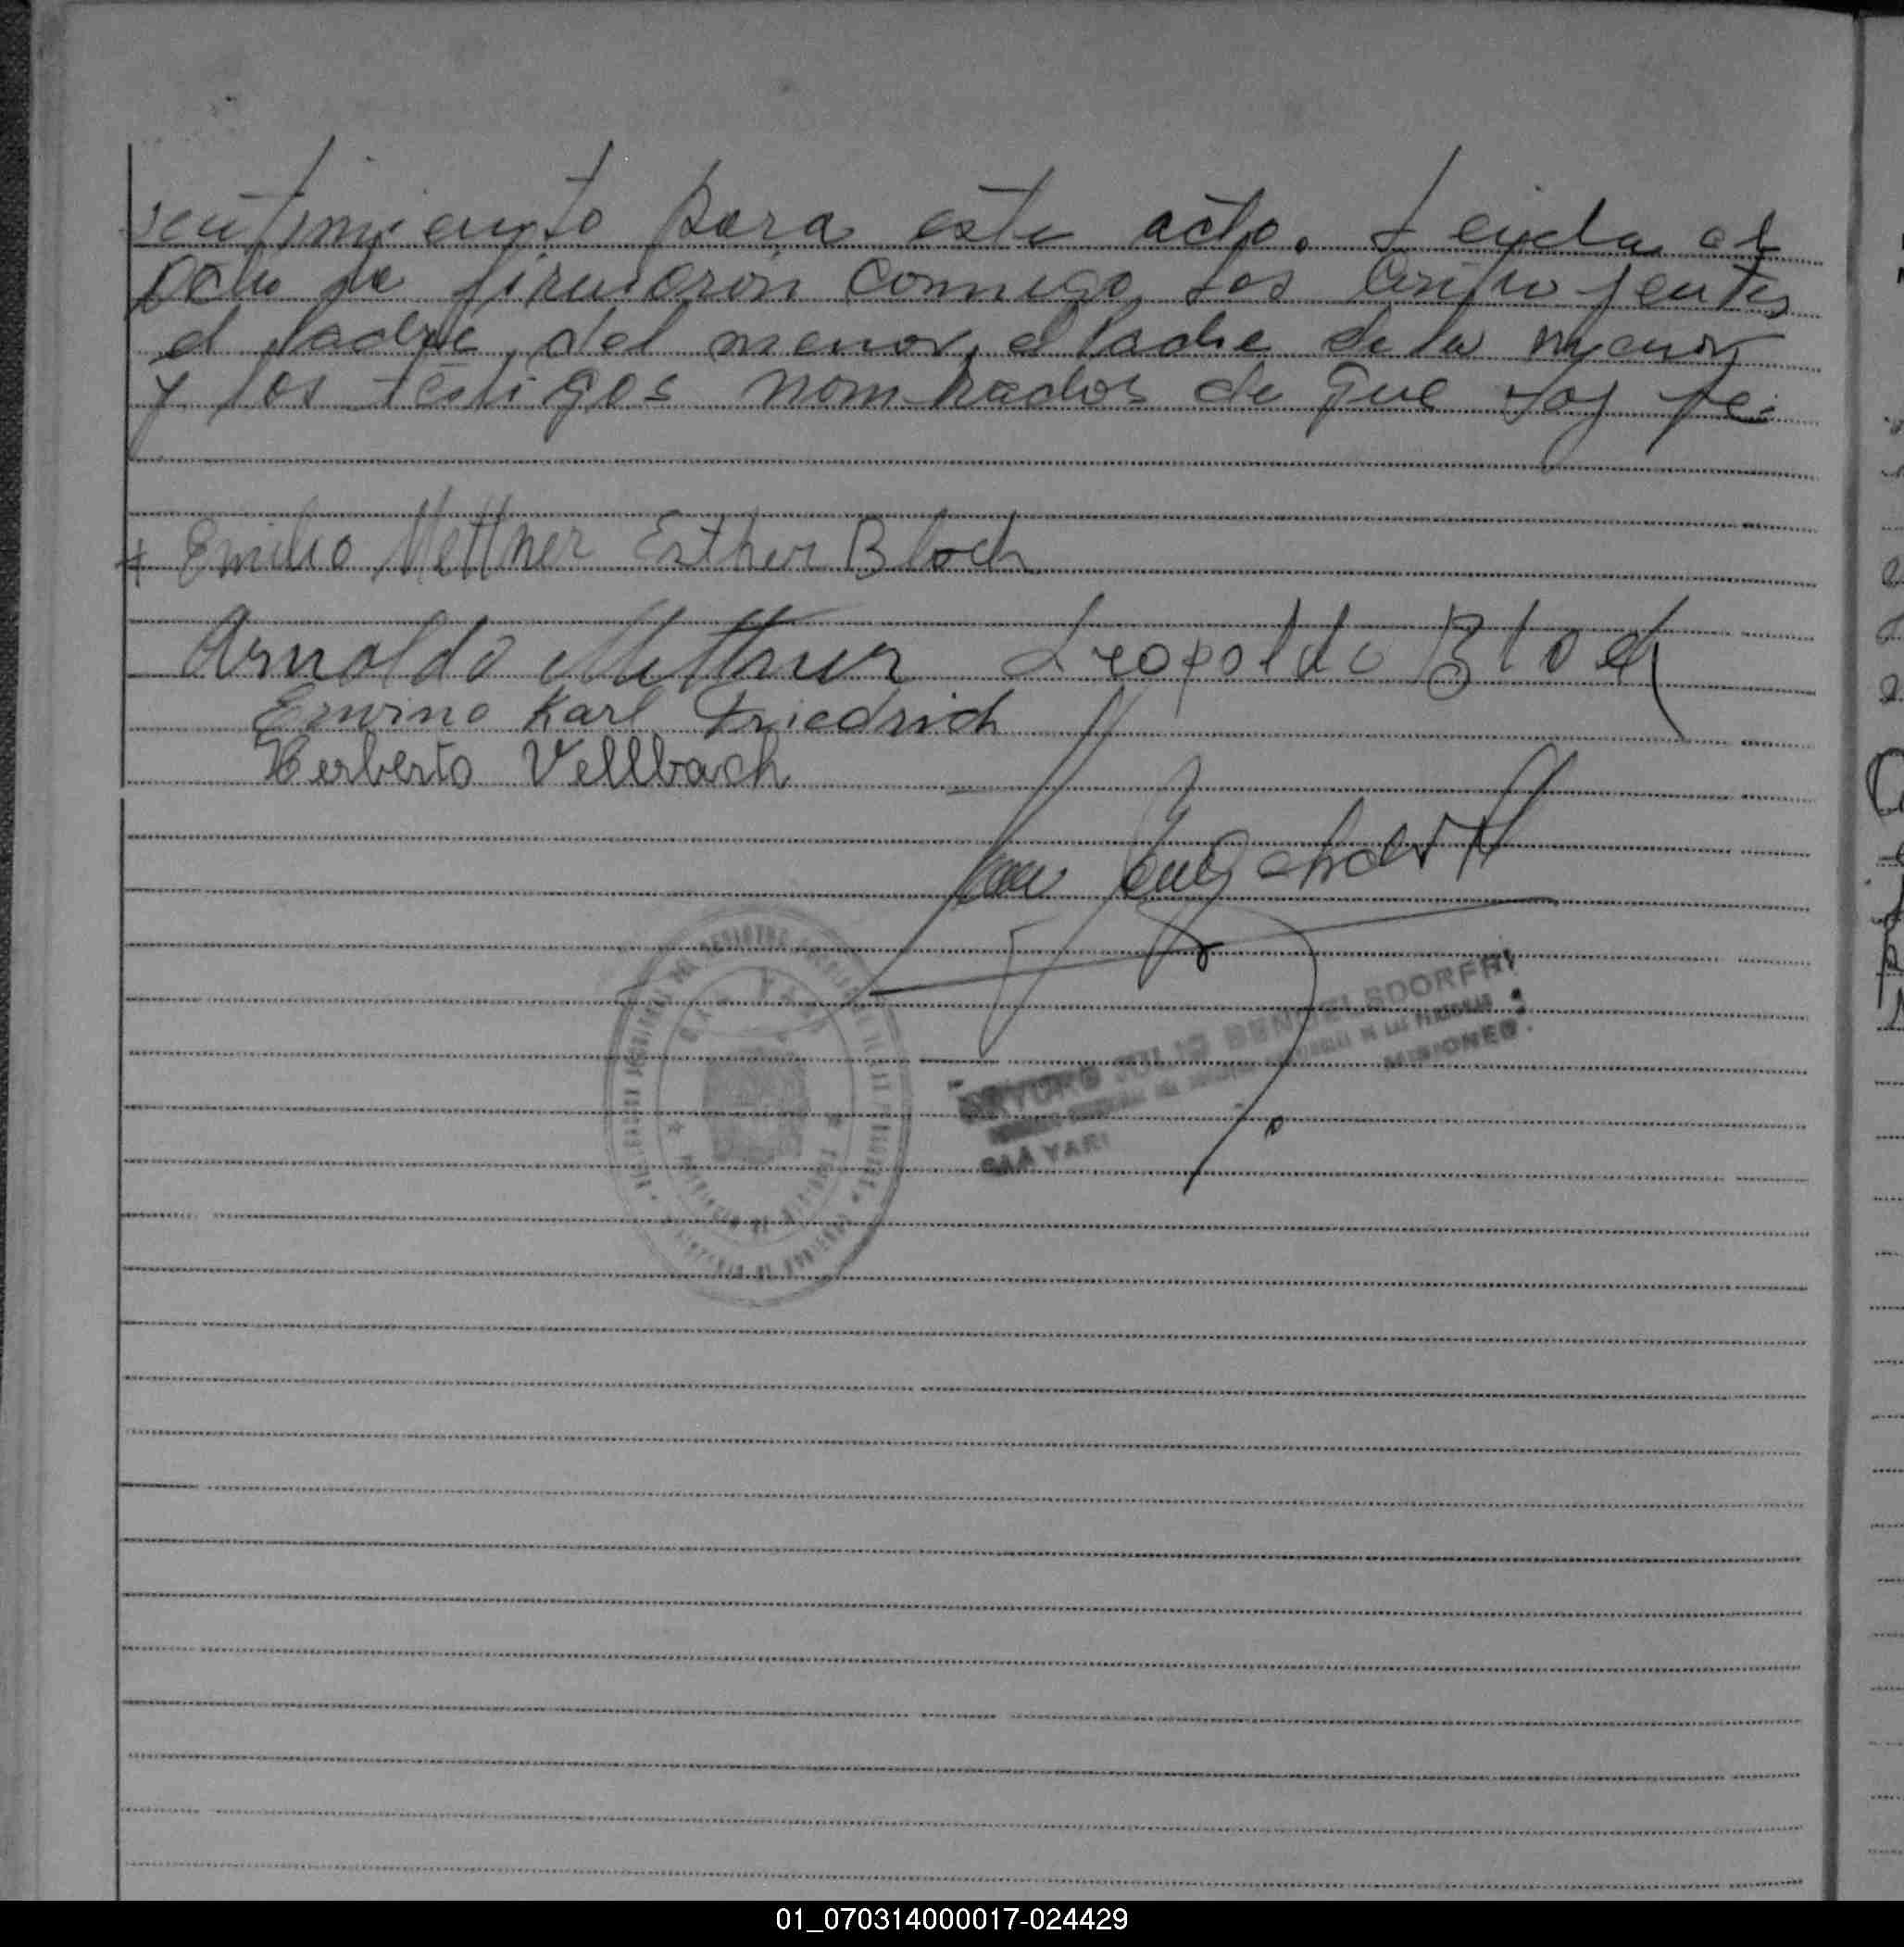 sentimiento para este acto. Leida el
acta la firmaron conmigo, los contrayentes
el padre del menor, el padre de la menor
y los testigos nombrados de que doy fe.
Emilio Mettner Esther Bloch
Arnoldo Mettner Leopoldo Bloch
Erwino Karl Friedrich
Herberto Vellbach
BENGELSDORFF
DE LAS PERSONAS
MISIONES.
CAA YARI
01_070314000017-024429